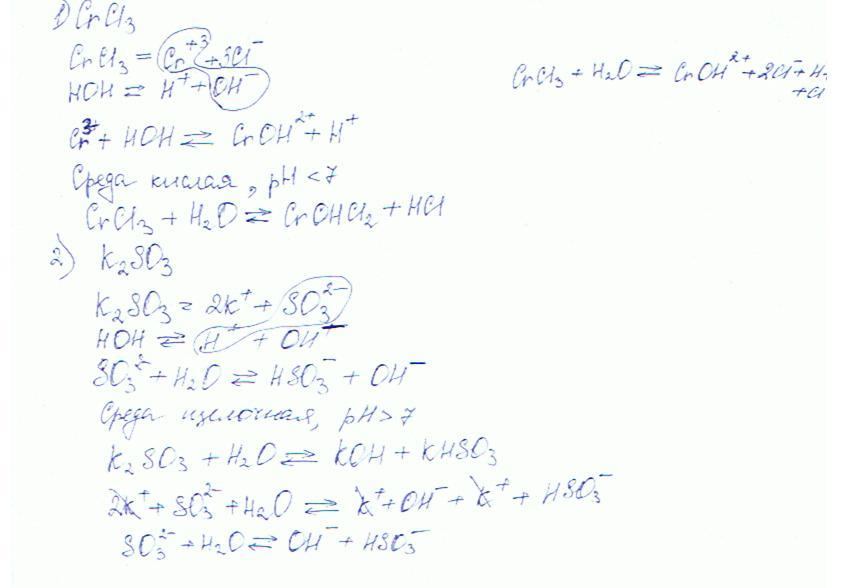 1) CrCl₃
CrCl₃ = Cr⁺³ + 3Cl⁻
HOH ⇌ H⁺ + OH⁻
CrCl₃ + H₂O ⇌ CrOH²⁺ + 2Cl⁻ + H
+ Cl
Cr³⁺ + HOH ⇌ CrOH²⁺ + H⁺
Среда кислая, pH < 7
CrCl₃ + H₂O ⇌ CrOHCl₂ + HCl
2) K₂SO₃
K₂SO₃ = 2K⁺ + SO₃²⁻
HOH ⇌ H⁺ + OH⁻
SO₃²⁻ + H₂O ⇌ HSO₃⁻ + OH⁻
Среда щелочная, pH > 7
K₂SO₃ + H₂O ⇌ KOH + KHSO₃
2K⁺ + SO₃²⁻ + H₂O ⇌ K⁺ + OH⁻ + K⁺ + HSO₃⁻
SO₃²⁻ + H₂O ⇌ OH⁻ + HSO₃⁻